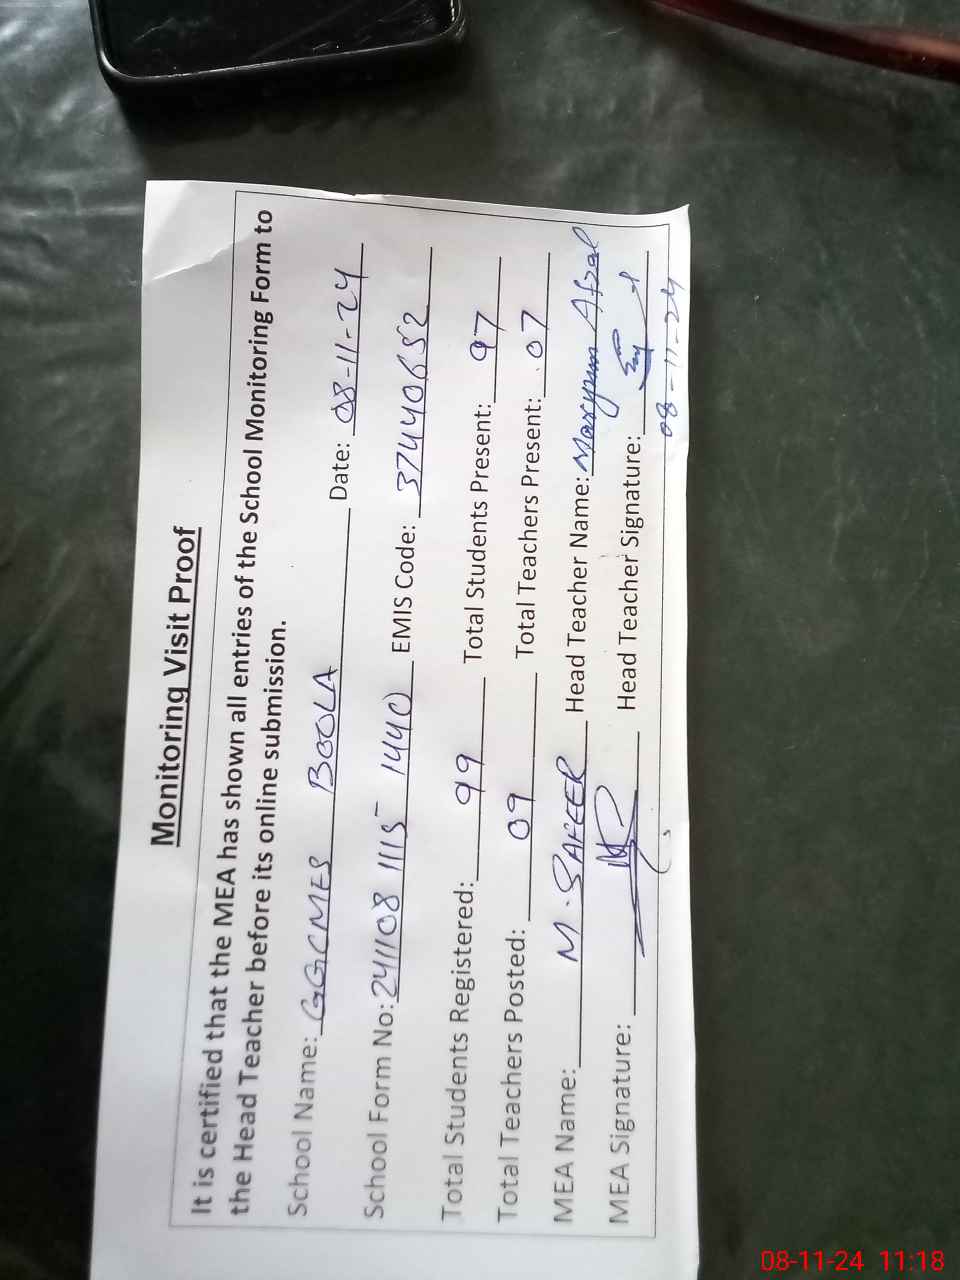 Monitoring Visit Proof
It is certified that the MEA has shown all entries of the School Monitoring Form to
the Head Teacher before its online submission.
School Name: GGCMES BOOLA Date: 08-11-24
School Form No: 241108 1115 1440 EMIS Code: 37440652
Total Students Registered: 99 Total Students Present: 97
Total Teachers Posted: 09 Total Teachers Present: 07
MEA Name: M. SAFEER Head Teacher Name: Maryum Afzal
MEA Signature: Head Teacher Signature:
08-11-24
08-11-24 11:18